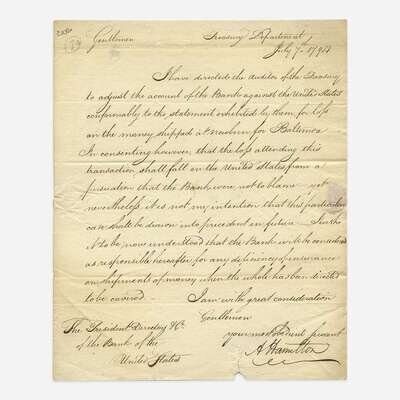 Gentlemen
Treasury Department,
July 7th
I have directed the Auditor of the Treasury
to adjust the account of the Bank against the United States
conformably to the statement exhibited by them for loss
on the money shipped at for Baltimore
In consenting however, that the loss attending this
transaction, shall fall on the United States from a
persuasion that the Bank were not to blame yet
nevertheless it is not my intention that this particular
case shall be drawn into precedent in future
it to be now understood that the Bank will be considered
as responsible hereafter for any deficiency of insurance
on shipments of money when the whole has been directed
to be covered. I am with great consideration
Gentlemen
your most obedient servant
A Hamilton
The President Directors &c.
of the Bank of the
United States